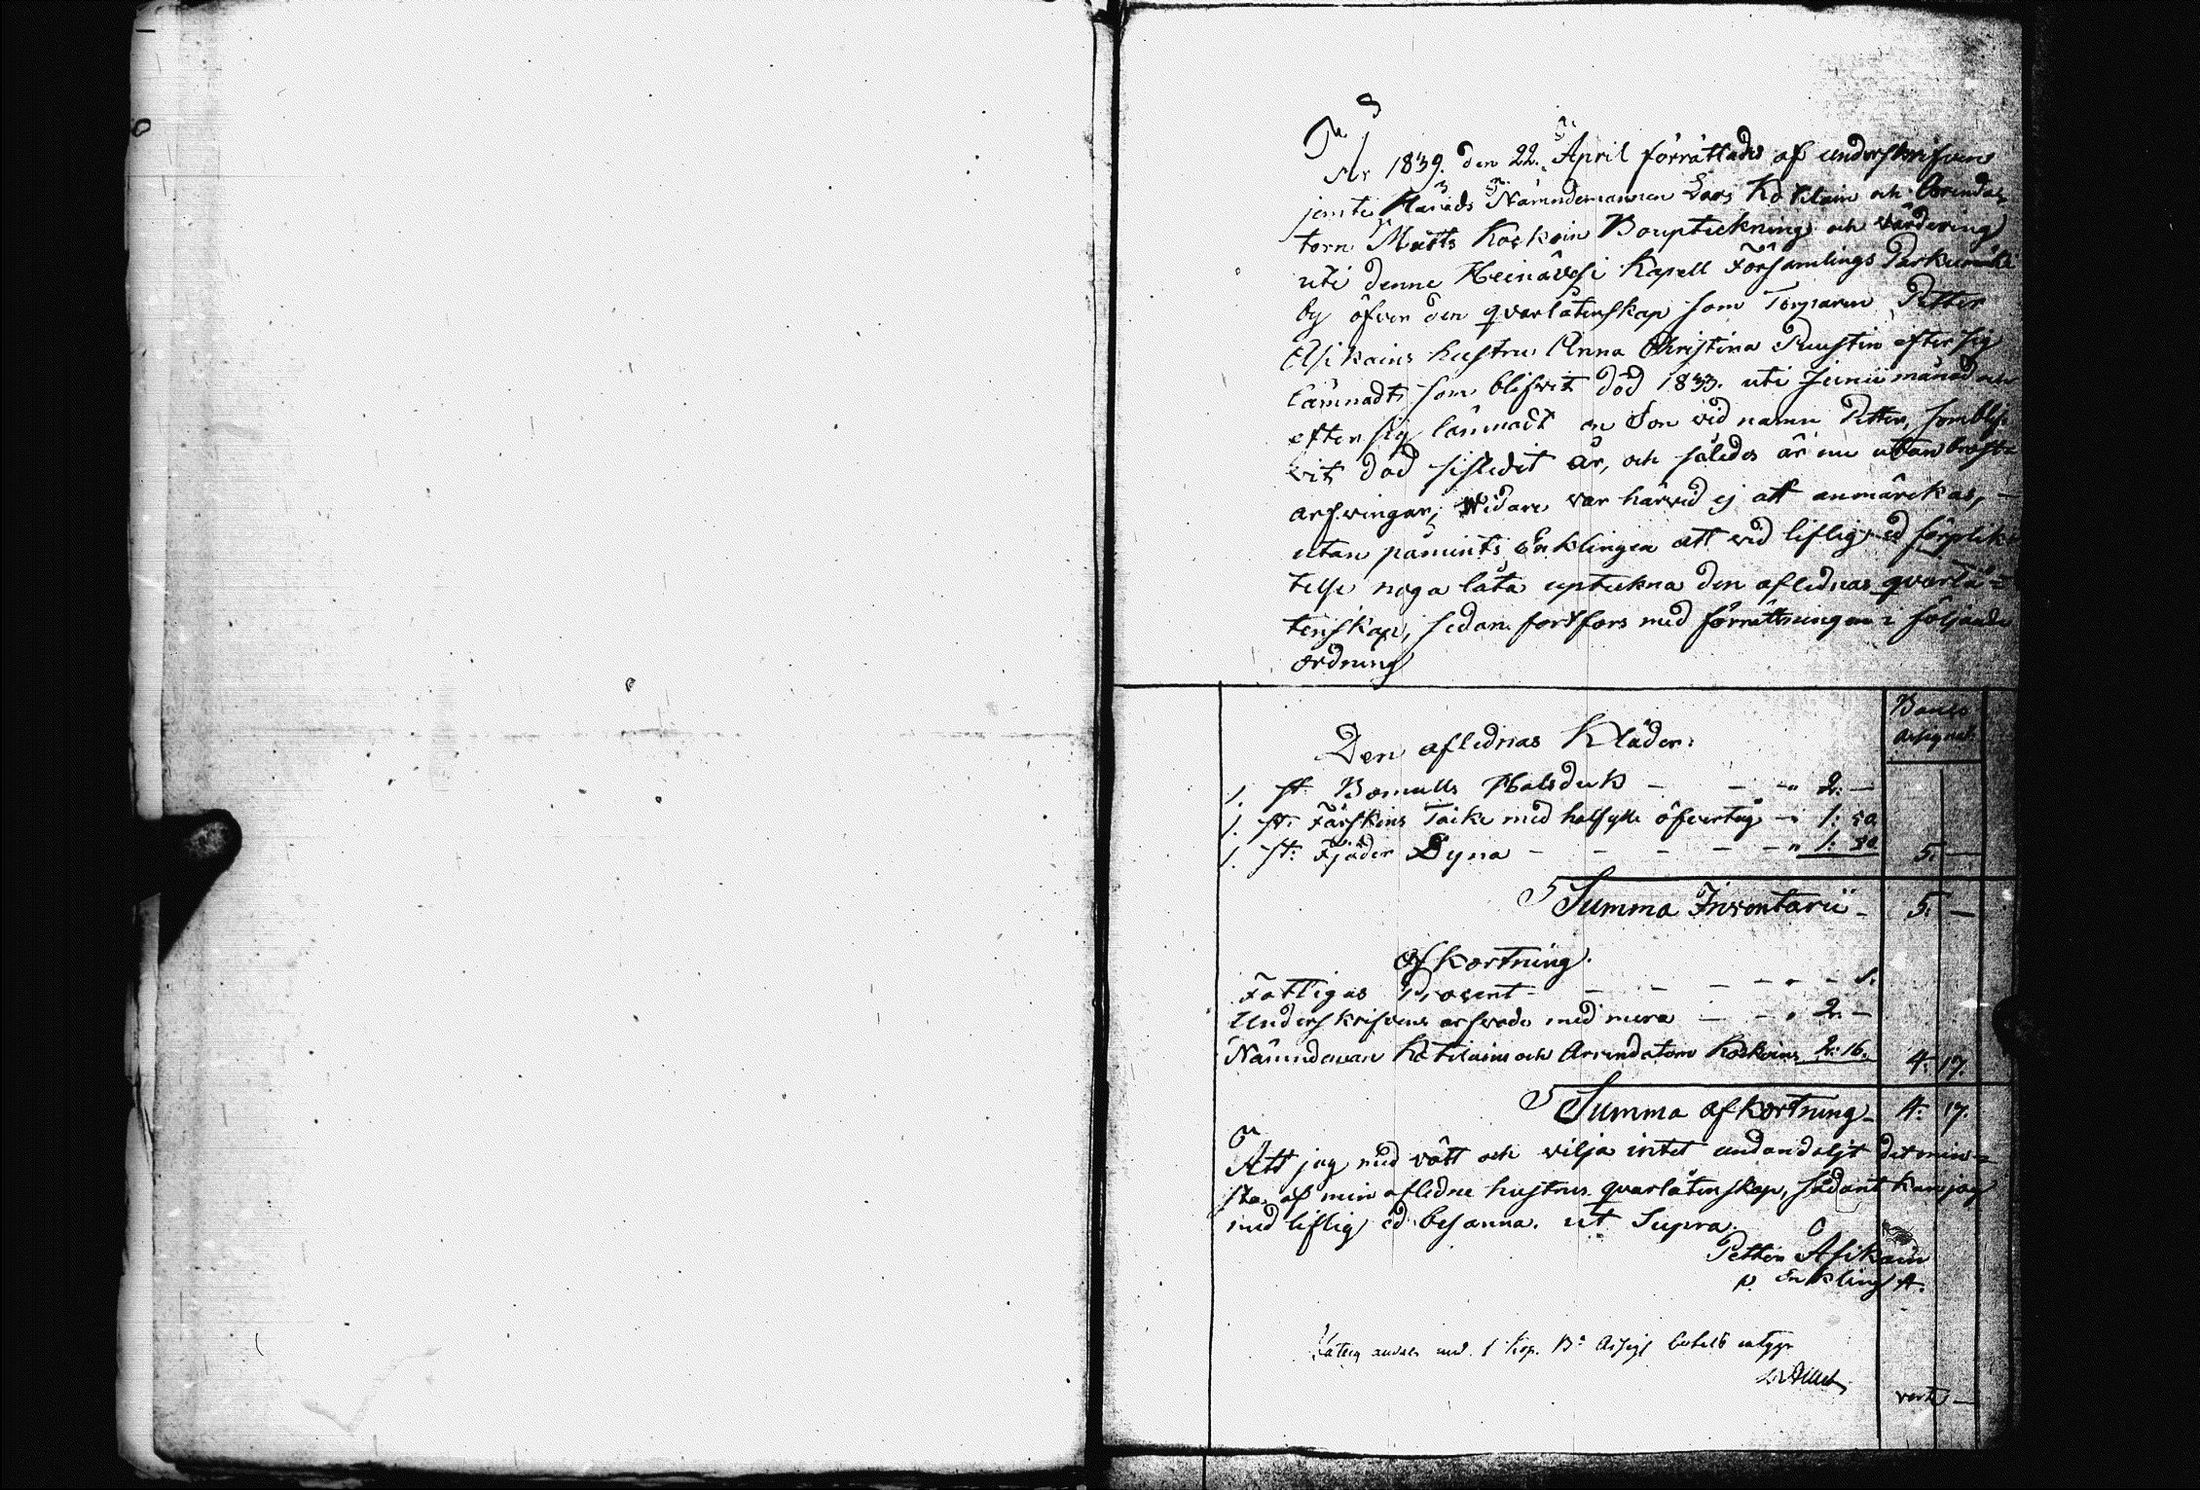 År 1839. den 22. April förrättades af underskrifven
jemte Härads Nämndemannen Lars Kotilain och Arenda-
torn Matts Koskoin Bouptekning och värdering
uti denne Heinävesi Kapell Församlings Parkumäki
by öfver den qvarlåtenskap som Torparen Petter
Asikains hustru Anna Christina Puustin efter sig
lämnadt, som blifvit död 1833. uti Junii månad och
efter sig lämnadt en Son vid namn Petter, som blif-
vit död sistledit år, och således är nu utan bröst-
arfvingar; widare var härvid ej att anmärckas, -
utan påmints Enklingen att vid liflig ed förplik-
telse noga låta uptekna den aflednas qvarlå-
tenskap, sedan fortfors med förrättningen i följande
ordning
Banco
Assignat
Den aflednas Kläder:
1. st. Bomulls Halsduk - - - " 2. -
1. st. Fårskins Täcke med halfylle öfvertåg - " 1: 50
1. st: Fjäder Dyna - - - - - " 1: 50 5. -
Summa Inventarii - 5. -
Afkortning.
Fattigas Procent - - - - " - 1.
Underskrifvens arfvode med mera - - " 2. -
Nämndeman Kotilains och Arrendatorn Koskoins 2: 16. 4. 17.
Summa afkortning - 4. 17.
Att jag med vett och vilja intet undandöljt det min-
sta af min afledne hustrus qvarlåtenskap, sådant kan jag
med liflig ed besanna. ut Supra.
Petter Asikain
Enkling
vert -